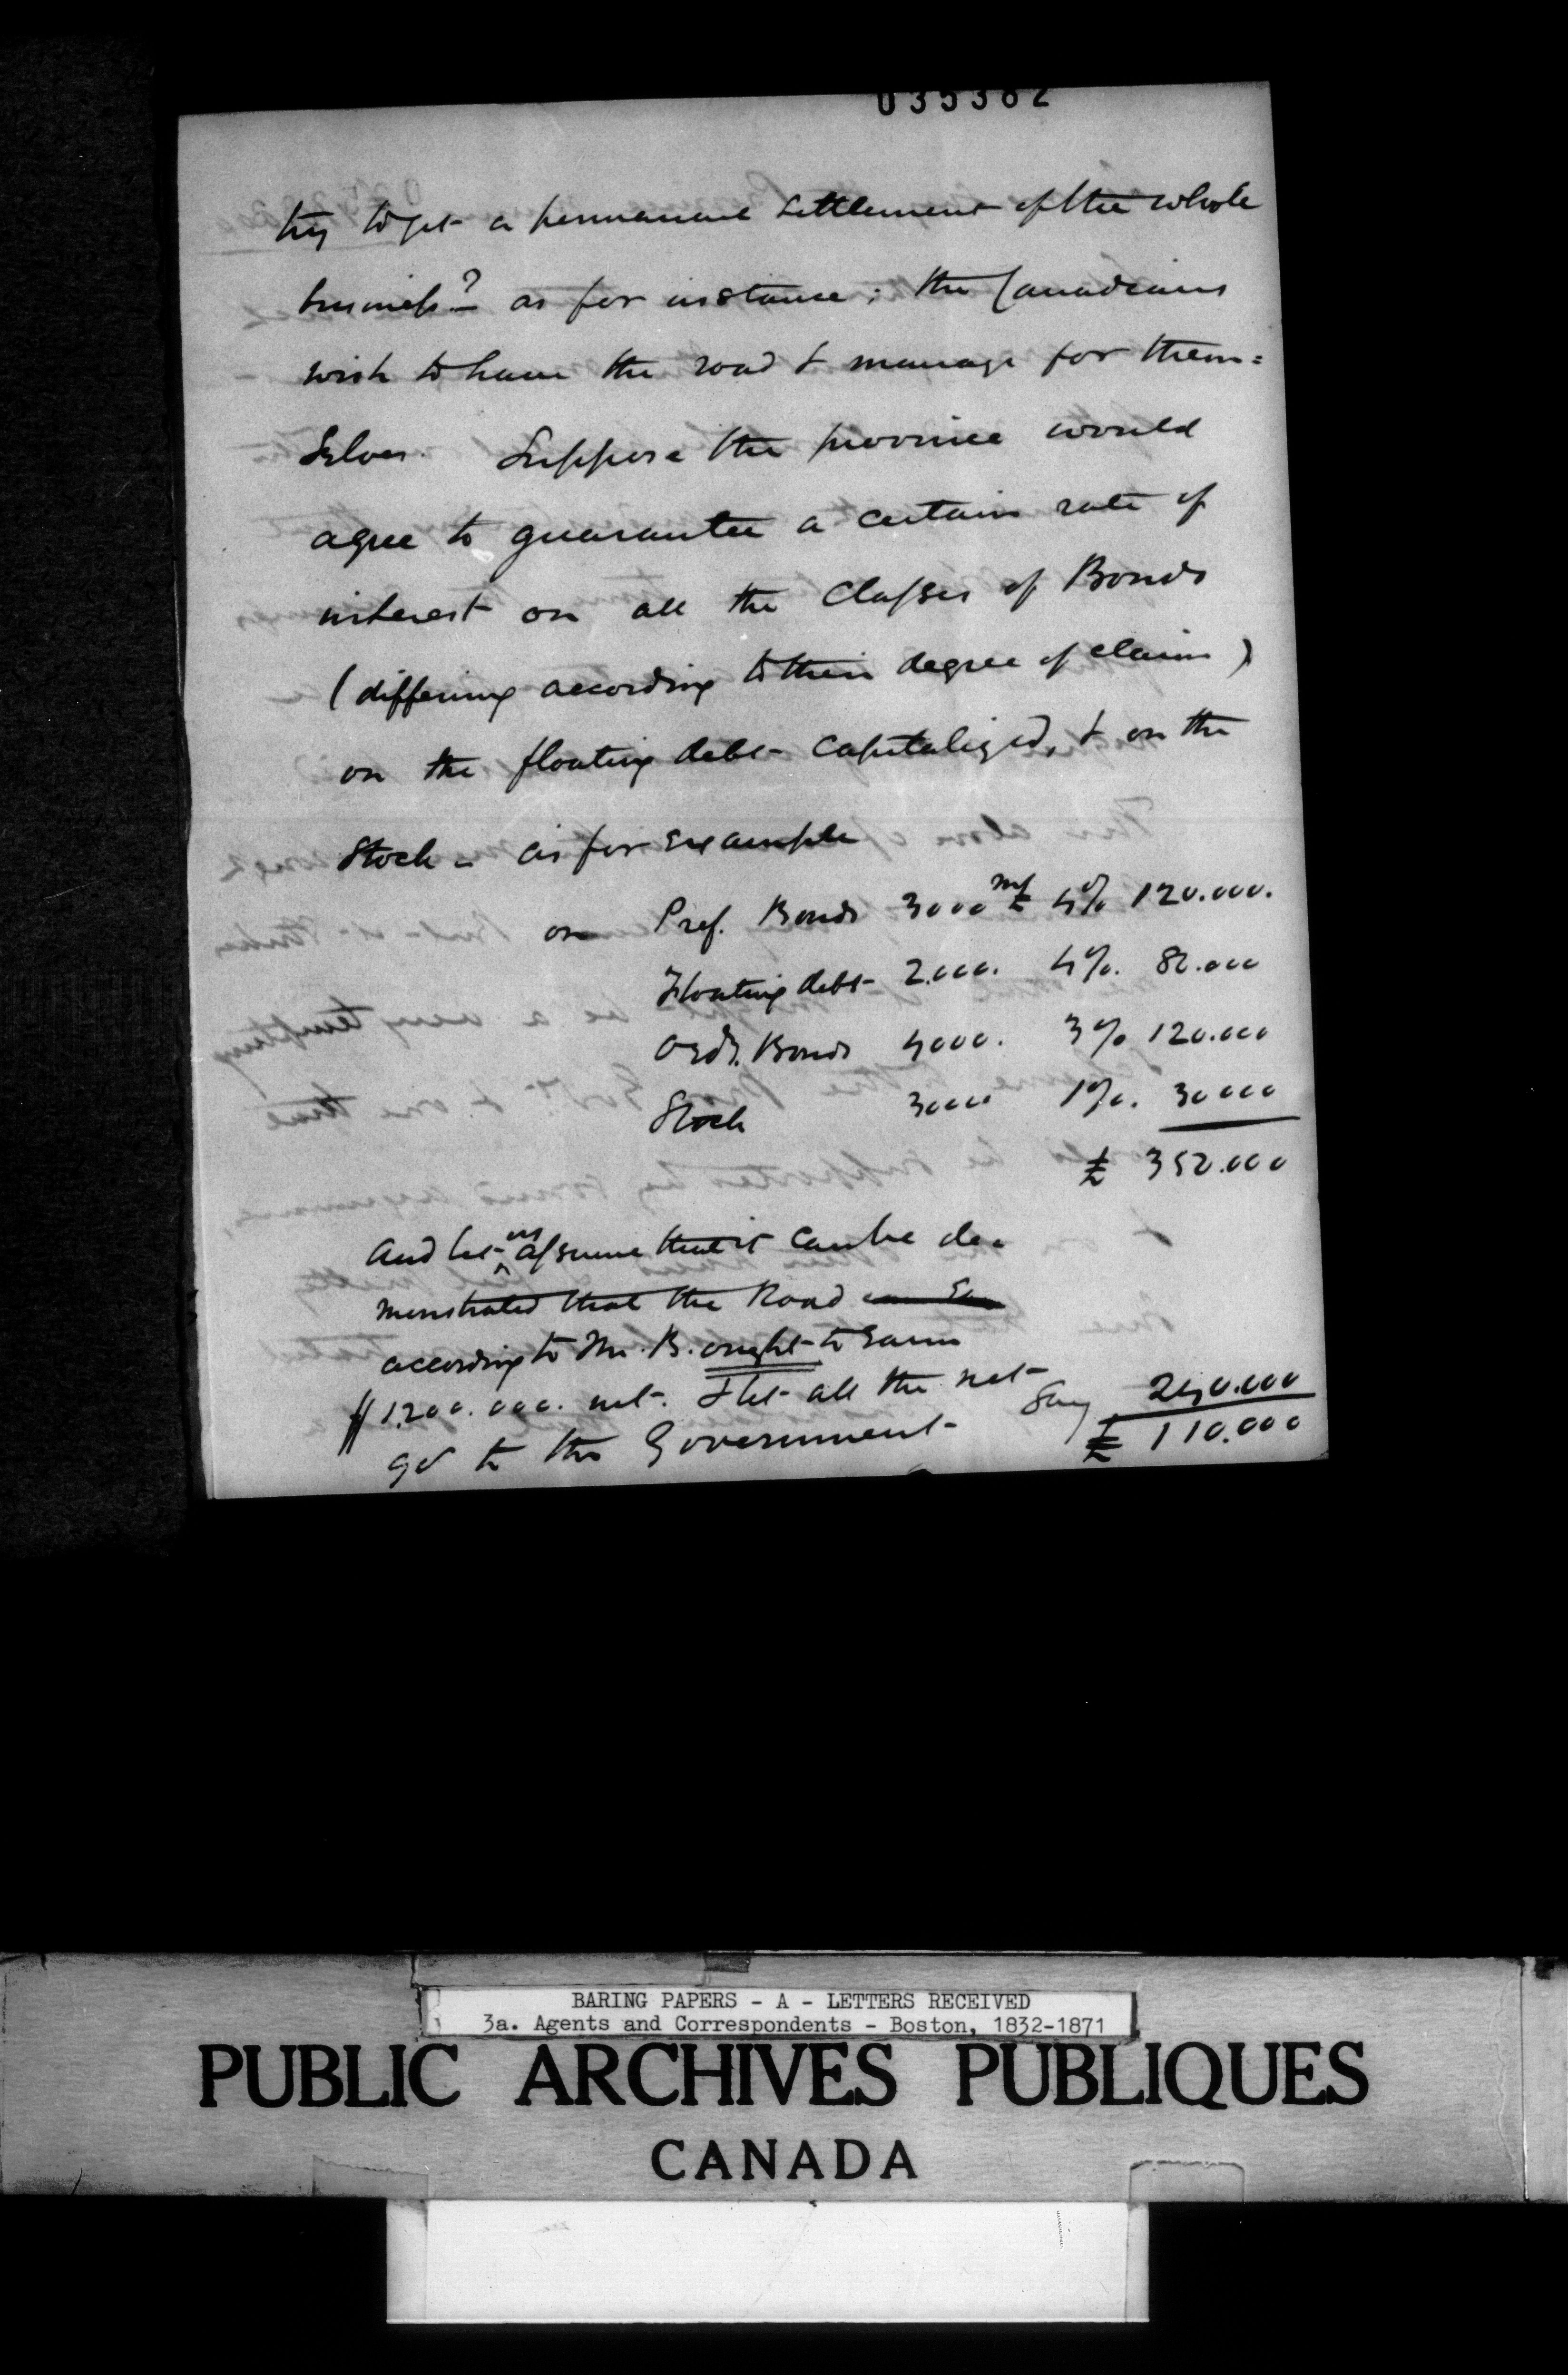 035382
try to get a permanent settlement of the whole
business? as for instance; the Canadians
wish to have the road & manage for them=
selves. Suppose the province would
agree to guarantee a certain rate of
interest on all the Classes of Bonds
(differing according to their degree of claim)
on the floating debt capitalized, & on the
Stock - as for example
on Pref. Bonds 3000 m£ 4% 120.000.
Floating debt 2.000. 4%. 82.000
Ordy. Bonds 4000. 3% 120.000
Stock 3000 1%. 30000
£ 352.000
And let us assume that it can be de=
monstrated that the Road
according to Mr. B. ought to earn
$1.200.000. net. & let all the net
go to the Government Say 240.000
£ 110.000
BARING PAPERS - A - LETTERS RECEIVED
3a. Agents and Correspondents - Boston, 1832-1871
PUBLIC ARCHIVES PUBLIQUES
CANADA